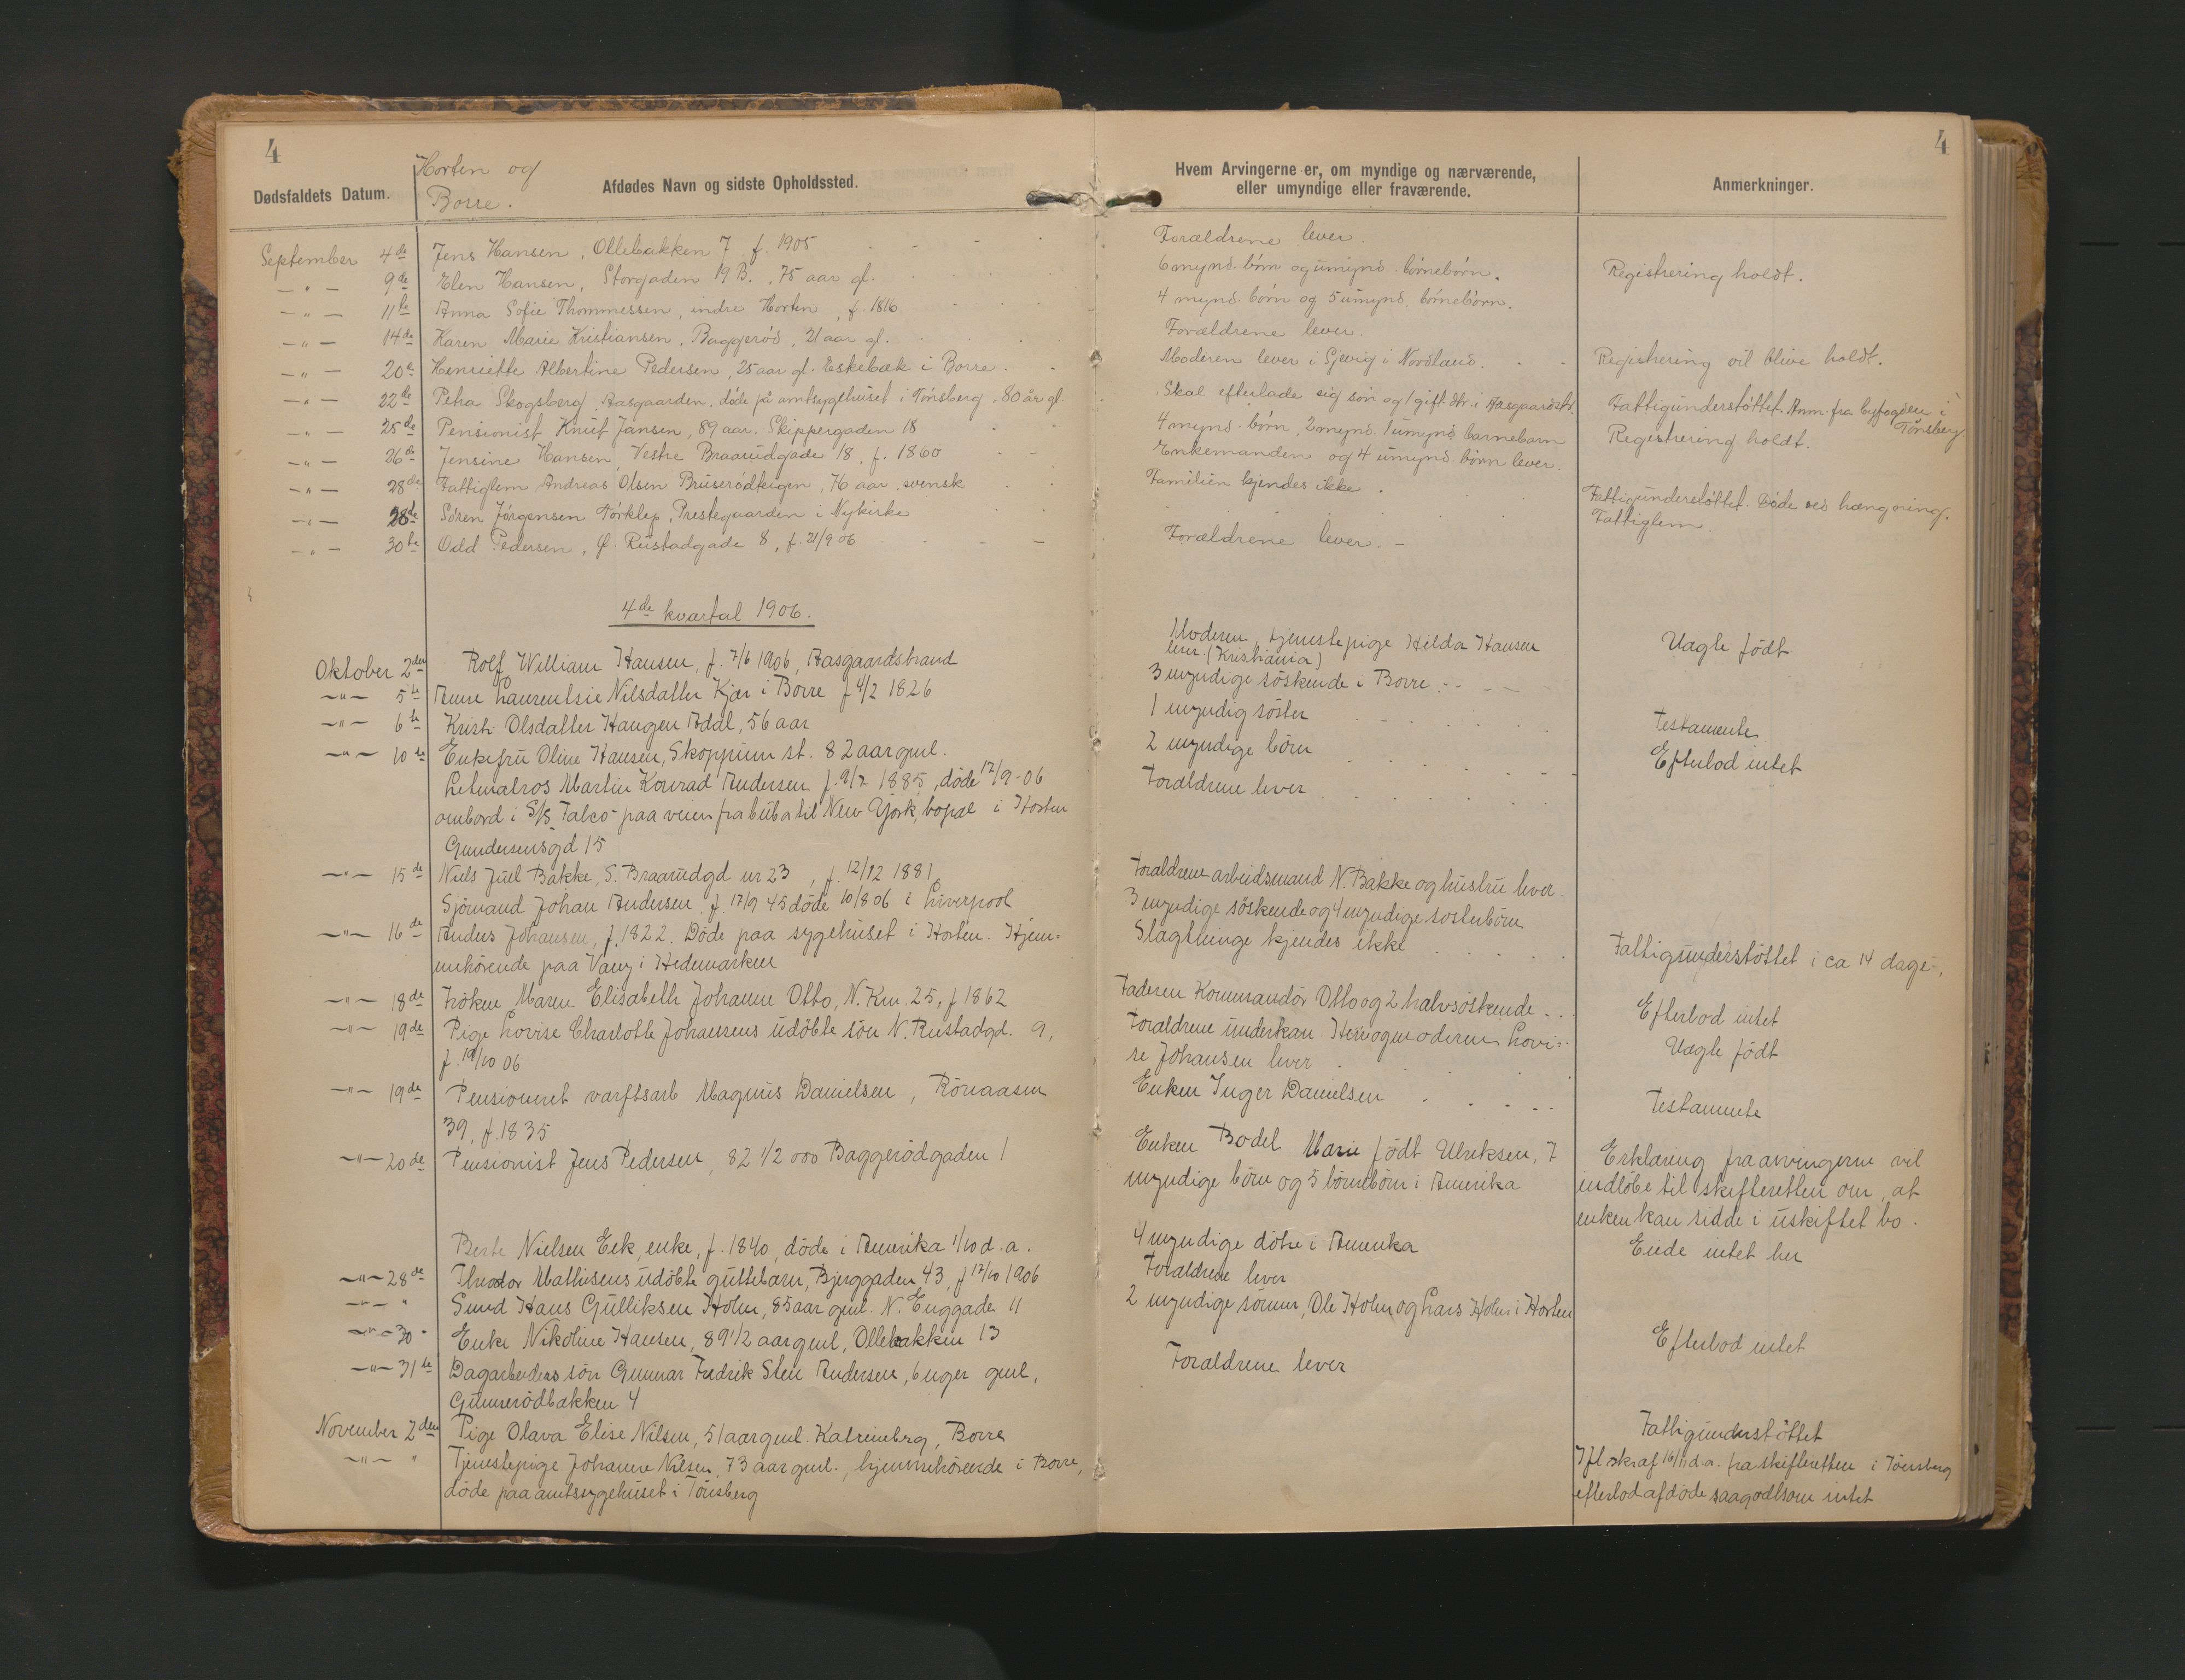 4
4
Horten og
Borre.
Dødsfaldets Datum.
Afdødes Navn og sidste Opholdssted.
Hvem Arvingerne er, om myndige og nærværende,
eller umyndige eller fraværende.
Anmerkninger.
September 4de Jens Hansen, Ollebakken 7 f. 1905 Forældrene lever.
-"- 9de Elen Hansen, Storgaden 19 B., 75 aar gl. 6 mynd. børn og umynd. børnebørn. Registrering holdt.
-"- 11te Anna Sofie Thommessen, indre Horten, f. 1816 4 mynd. børn og 5 umynd. børnebørn.
-"- 14de Karen Marie Kristiansen, Baggerød, 21 aar gl. Forældrene lever.
-"- 20de Henriette Albertine Pedersen, 25 aar gl. Eskebæk i Borre. Moderen lever i Gjevig i Nordland. Registrering vil blive holdt.
-"- 22de Petra Skogsberg, Aasgaarden, døde på amtsygehuset i Tønsberg, 80 år gl. Skal efterlade sig søn og 1 gift. dtr. i Aasgaardstr. Fattigunderstøttet. Anm. fra byfogden i
Tønsberg
-"- 25de Pensionist Knut Jansen, 89 aar. Skippergaden 18 4 mynd. børn, 2 mynd. 1 umynd. barnebarn Registrering holdt.
-"- 26de Jensine Hansen, Vestre Braarudgade 18, f. 1860 Enkemanden og 4 umynd. børn lever.
-"- 28de Fattiglem Andreas Olsen Bruserødteigen, 76 aar, svensk Familien kjendes ikke. Fattigunderstøttet. Døde ved hængning.
-"- 28de Sören Jörgensen Törklep, Prestegaarden i Nykirke Fattiglem.
-"- 30te Odd Pedersen, Ø. Rustadgade 8, f. 21/9 06 Forældrene lever. -
4de kvartal 1906.
Oktober 2den Rolf William Hansen, f. 7/6 1906, Aasgaardstrand Moderen, tjenestepige Hilda Hansen Uægte födt
lever. (Kristiania)
-"- 5te Anne Laurentsie Nilsdatter Kjær i Borre f 4/2 1826 3 myndige söskende i Borre
-"- 6te Kristi Olsdatter Haugen Adal, 56 aar 1 myndig söster Testamente
-"- 10de Enkefru Oline Hansen, Skoppum st. 82 aar gml. 2 myndige börn Efterlod intet
Letmatros Martin Konrad Andersen f. 9/2 1885, döde 12/9-06 Forældrene lever
ombord i S/S Falco paa veien fra Cuba til New York, bopæl i Horten
Gundersensgd 15
-"- 15de Niels Juel Bakke, S. Braarudgd nr 23, f. 12/12 1881 Forældrene arbeidsmand N. Bakke og hustru lever.
Sjömand Johan Andersen f. 17/9 45 döde 10/8 06 i Liverpool 3 myndige söskende og 4 myndige sösterbörn
-"- 16de Anders Johansen, f. 1822. Döde paa sygehuset i Horten. Hjem- Slægtninge kjendes ikke Fattigunderstöttet i ca 14 dage.
mehørende paa Vang i Hedemarken
-"- 18de Fröken Maren Elisabeth Johanne Otto, N. Km. 25, f 1862 Faderen Kommandör Otto og 2 halvsöskende Efterlod intet
-"- 19de Pige Lovise Charlotte Johansens udöbte sön N. Rustadgd. 9, Forældrene underkan. Herre og moderen Lovi- Uægte födt
f. 19/10 06 se Johansen lever
-"- 19de Pensioneret varftsarb Magnus Danielsen, Rönaasen Enken Inger Danielsen Testamente
39, f. 1835
-"- 20de Pensionist Jens Pedersen, 82 1/2 Baggerödgaden 1 Enken Bodel Marie födt Ulriksen, 7 Erklæring fra arvingerne vil
myndige börn og 5 börnebörn i Amerika indlöbe til skifteretten om, at
enken kan sidde i uskiftet bo.
Berte Nielsen Eek, enke, f. 1840, döde i Amerika 1/10 d. a. 4 myndige dötre i Amerika Eiede intet her
-"- 28de Theodor Mathisens udöbte guttebarn, Bjerggaden 43, f 17/10 1906 Forældrene lever
-"- " Smed Hans Gulliksen Holm, 85 aar gml. N. Enggade 11 2 myndige sönner, Ole Holm og Lars Holm i Horten
-"- 30 " Enke Nikoline Hansen, 89 1/2 aar gml, Ollebakken 13 Efterlod intet
-"- 31te Dagarbeiders sön Gunnar Fredrik Sten Andersen, 6 uger gml, Forældrene lever
Gunnerödbakken 4
November 2den Pige Olava Elise Nilsen, 51 aar gml. Katrineberg, Borre Fattigunderstöttet
-"- " Tjenestepige Johanne Nilsen, 73 aar gml., hjemmehörende i Borre, Ifl skr af 16/11 d.a. fra skifteretten i Tönsberg
döde paa amtssygehuset i Tönsberg efterlod afdöde saagodtsom intet